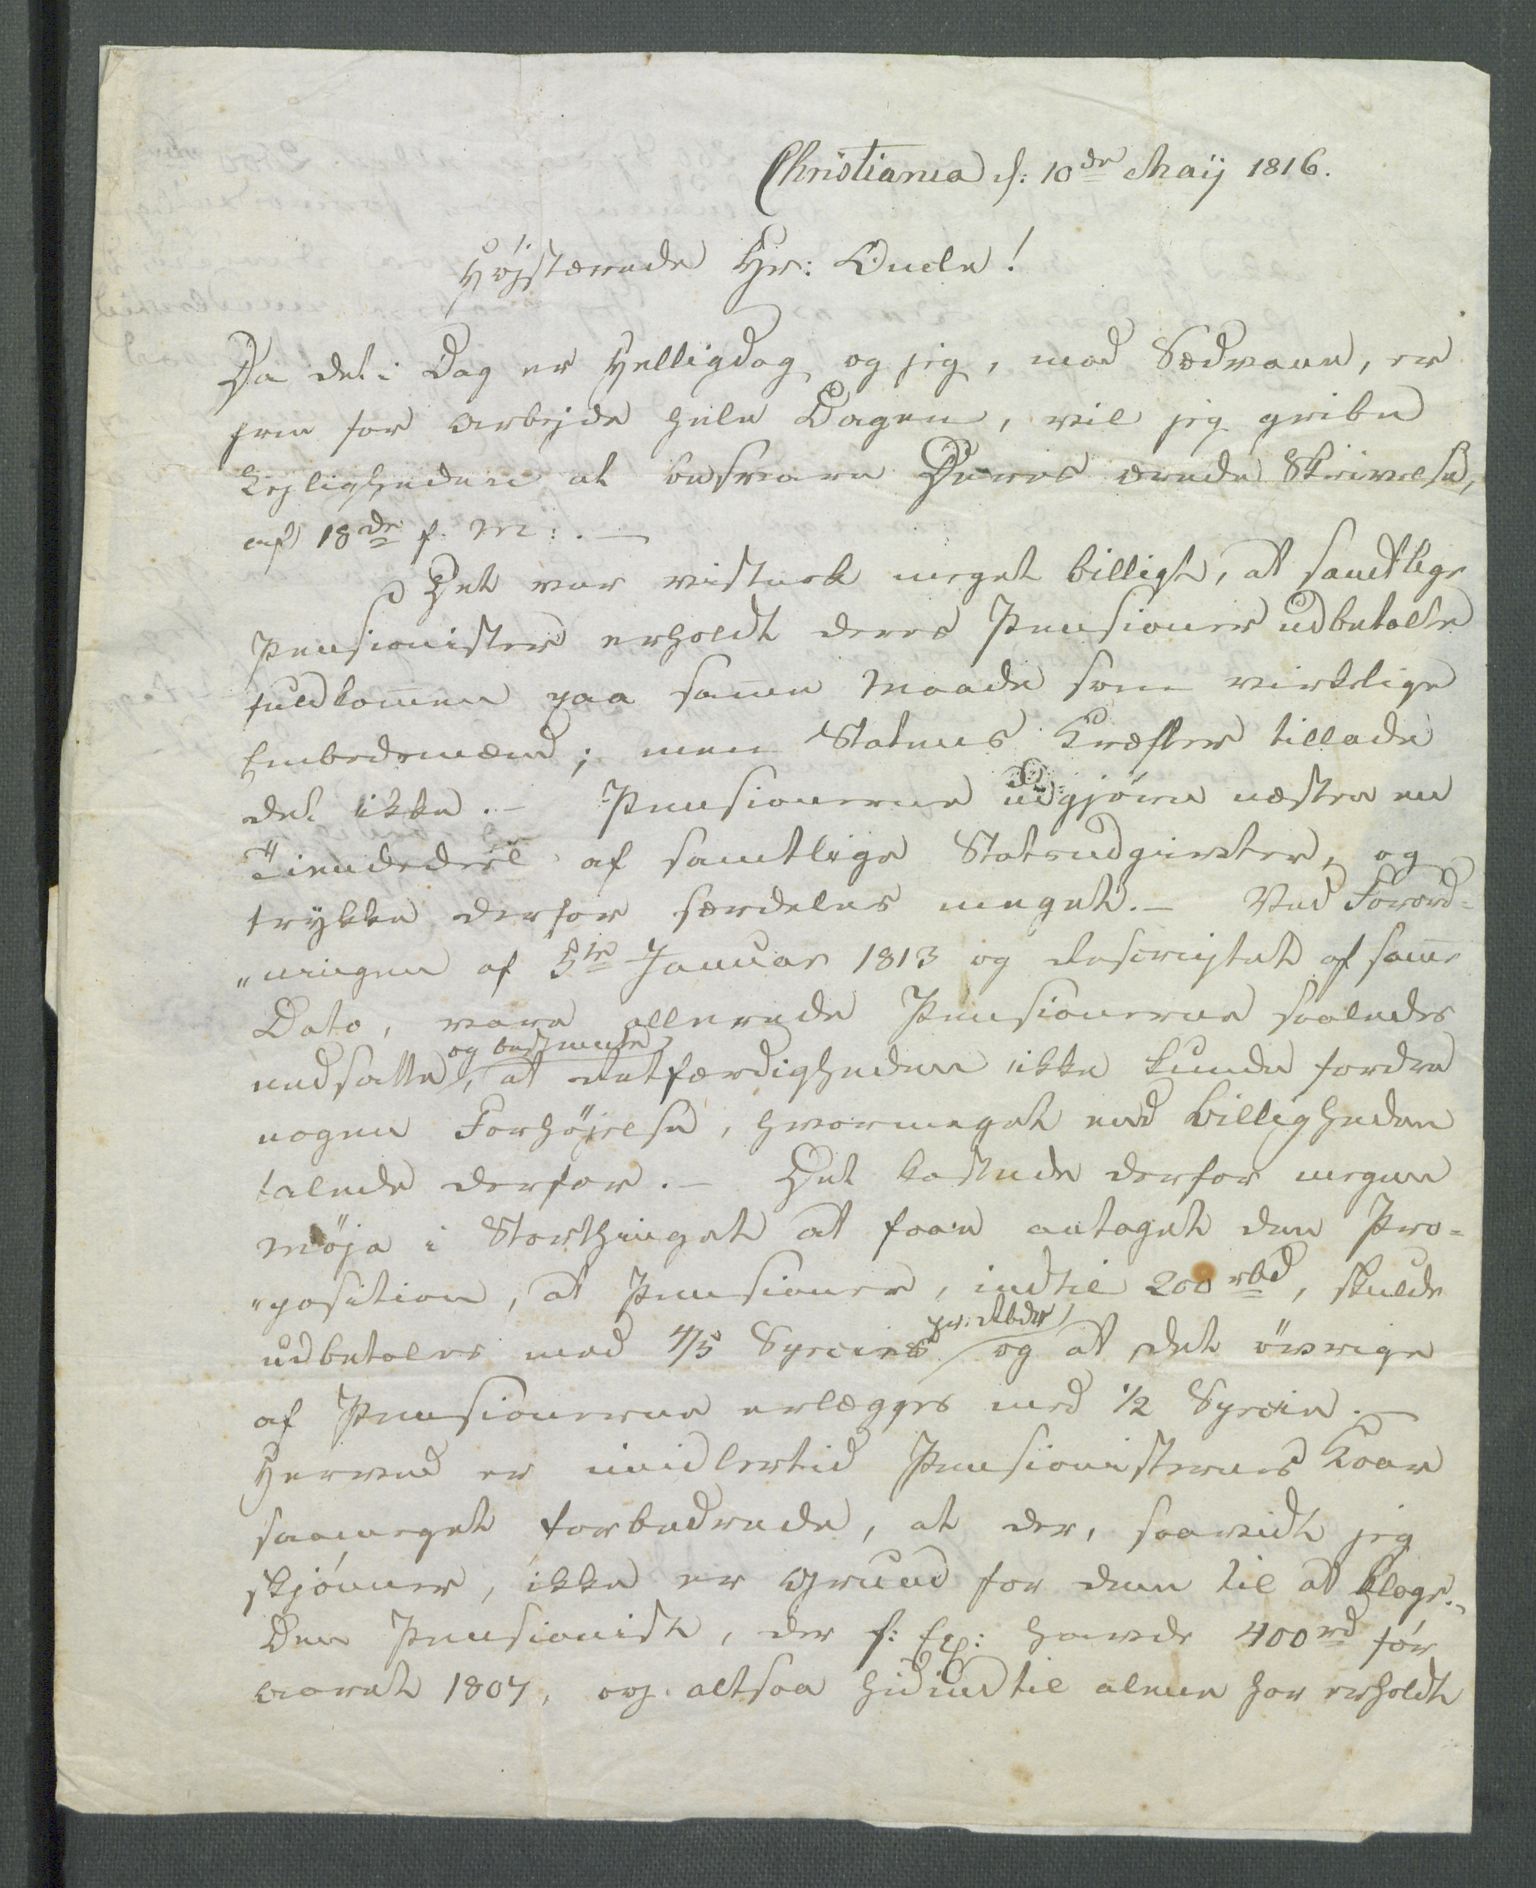 Christiania d: 10de Maij 1816.
Højstærede Hr: Onele!
Da det i Dag er Helligdag og jeg, mod Sædvane, er
frie for Arbejde hele Dagen, vil jeg gribe
Lejligheden at besvare Deres ærede Skrivelse,
af 18de f. M: . —
Det var vistnok meget billigt, at samtlige
Pensionister erholdt deres Pensioner udbetalte
fuldkom̅en paa sam̅e Maade som virkelige
Embedsmænd; men Statens Kræfter tillade
det ikke. — Pensionerne udgjøre næsten en
Tiendedeel af samtlige Statsudgivter, og
trykke derfor særdeles meget. — Ved Forord-
„ningen af 5te Januar 1813 og Rescriptet af sam̅e
Dato, vare allerede Pensionerne saaledes
og bestemte
nedsatte, at Retfærdigheden ikke kunde fordre
nogen Forhøjelse, hvormeget end Billigheden
talede derfor. — Det kostede derfor megen
Møje i Storthinget at faae antaget den Pro-
„position, at Pensioner, indtil 200 rbd, skulde
pr: Rbdlr
udbetales med 4/5 Specie og at det øvrige
af Pensionerne erlægges med 1/2 Specie. —
Herved er imidlertid Pensionisternes Kaar
saameget forbedrede, at der, saavidt jeg
skjønner, ikke er Grund for dem til at klage. —
Den Pensionist, der f: Ex: havde 400 rd før
Aaret 1807, og altsaa hidindtil alene har erholdt